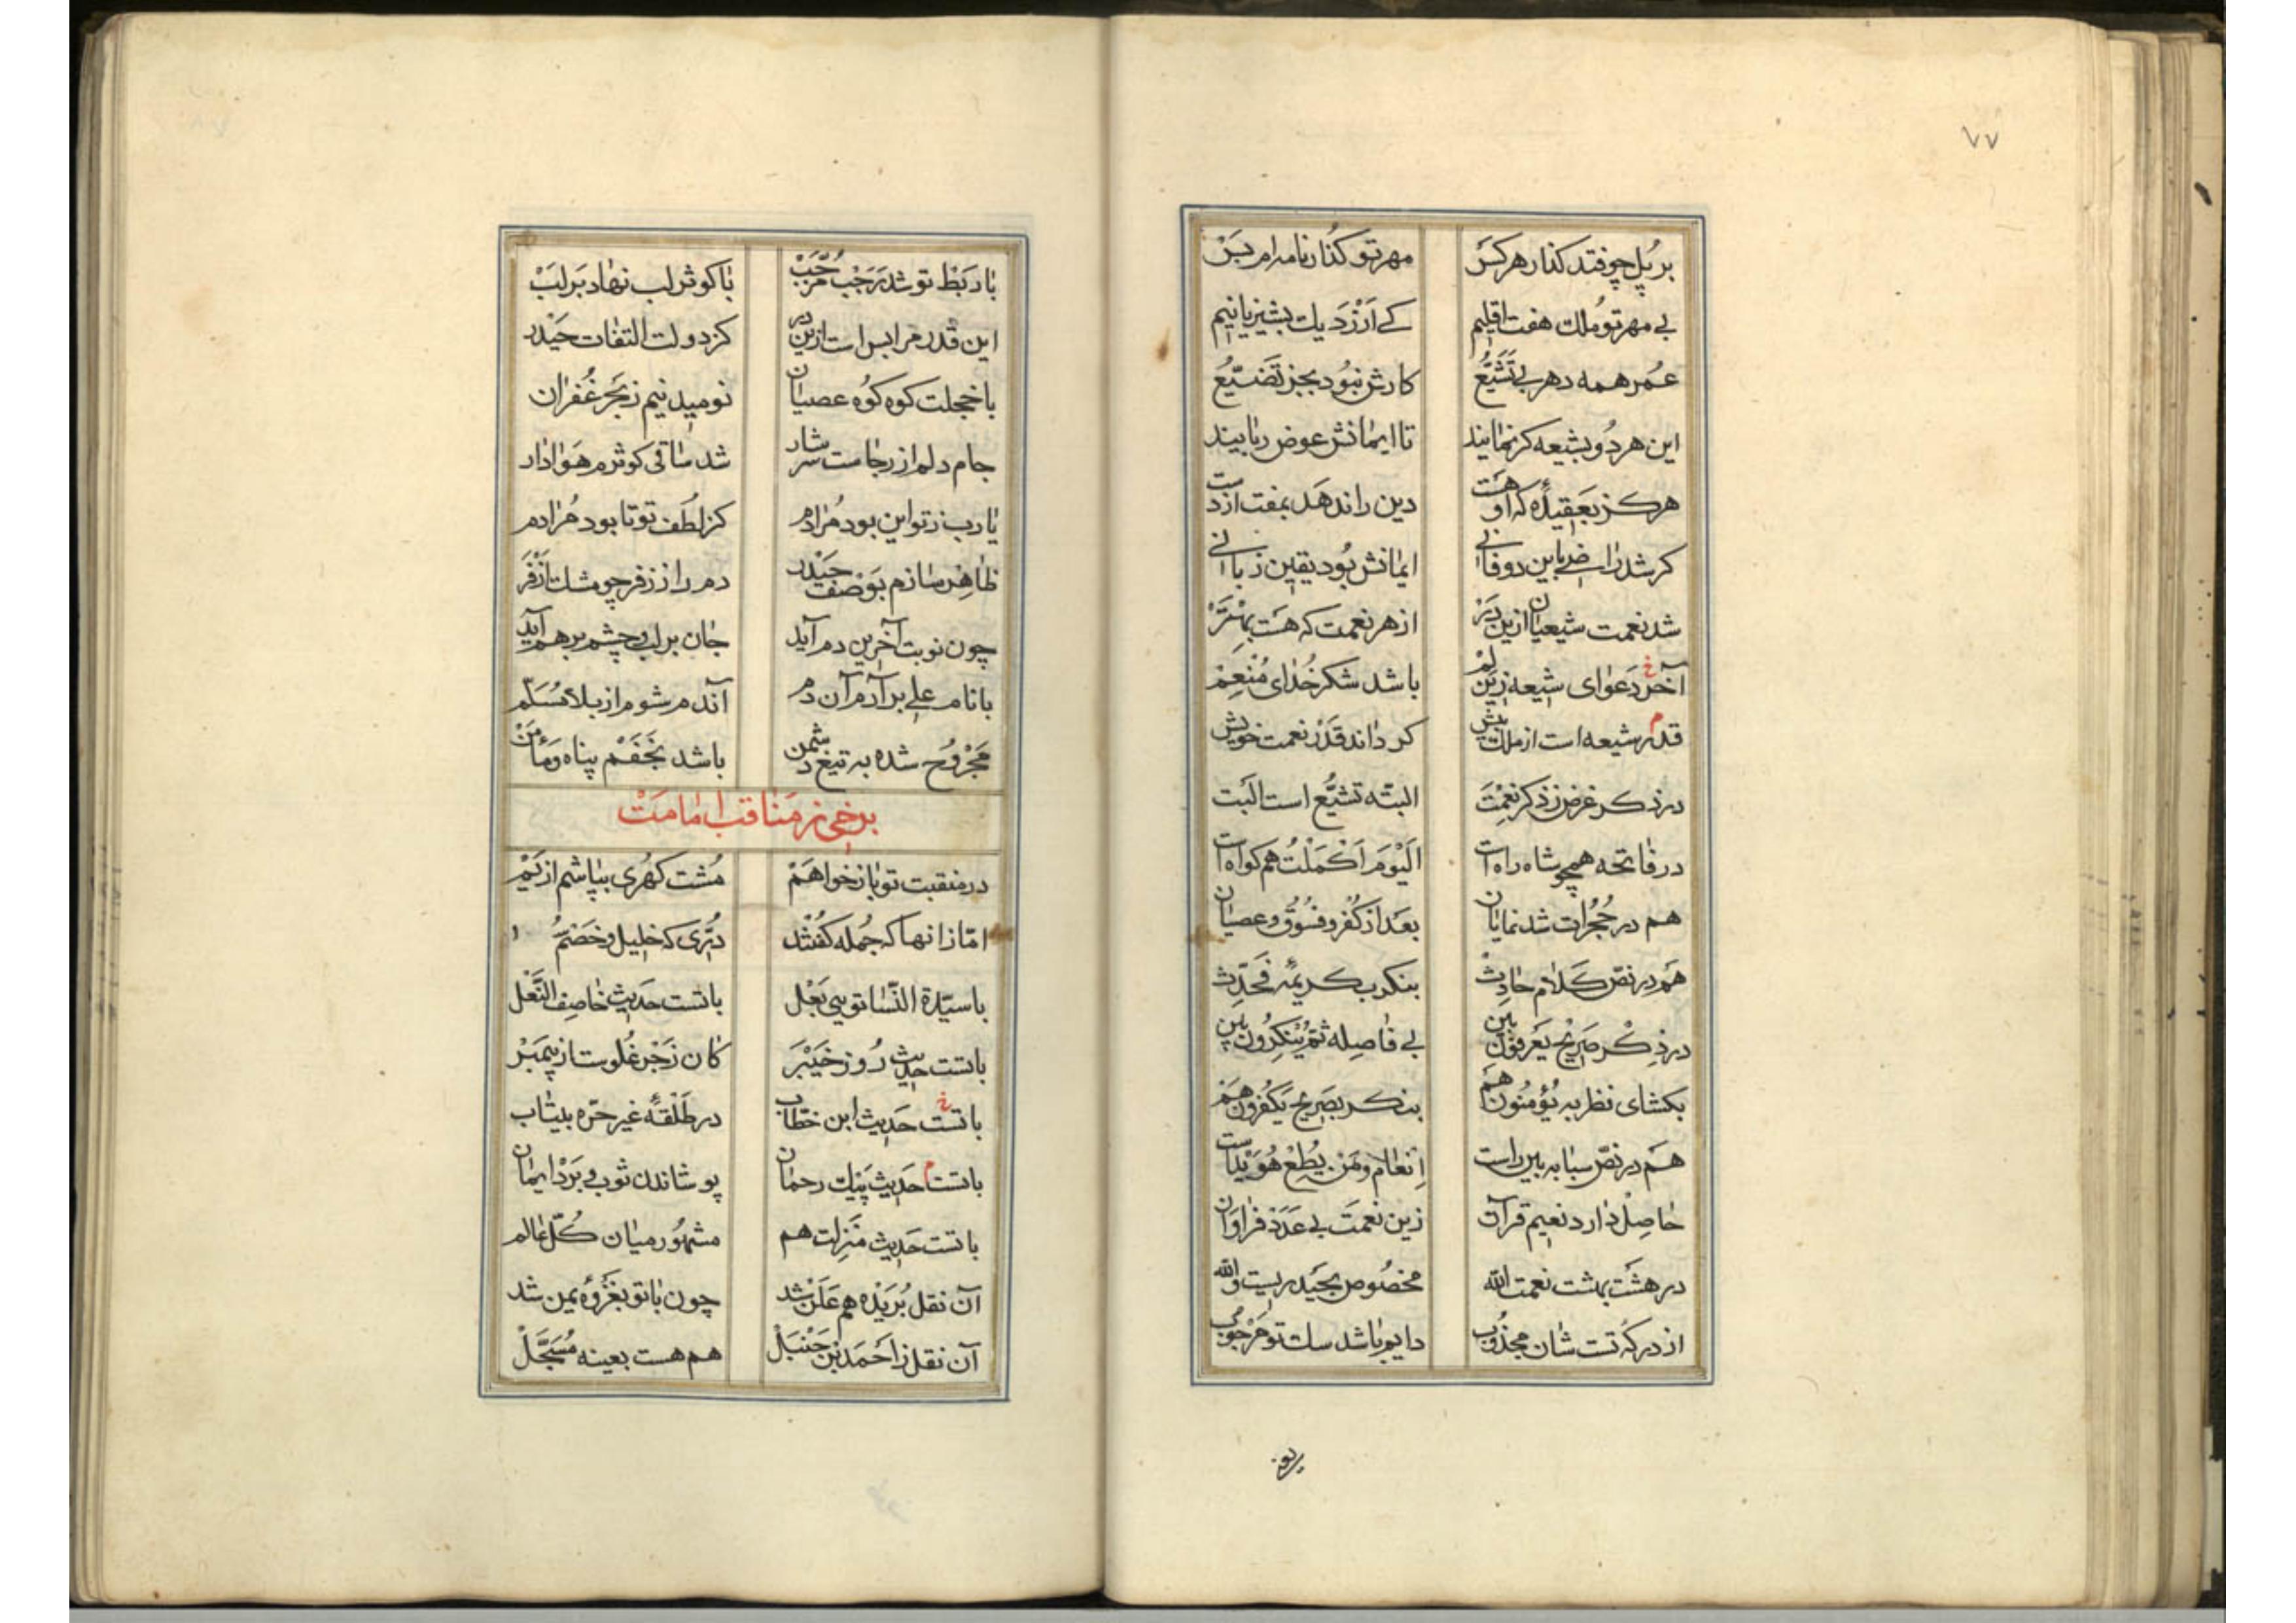 ٧٧
بر پل چو فتد کذار هر کس
مهر تو کذارنامه‌ام بس
بی مهر تو ملک هفت اقلیم
کے ارزد یک پشیز یا نیم
عمر همه دهر بی تشیع
کارش نبود بجز تضییع
این هر دو بشیعه کر نمایند
تا ایمانش عوض ربایند
هرکز بعقیدهٔ که او هست
دین را ندهد بمفت از دست
کر شد راضی باین دو فانی
ایمانش بود یقین زبانی
شد نعمت شیعیان ازین در
از هر نعمت که هست بهتر
آخر دعوای شیعه زین لم
باشد شکر خدای منعم
قدر شیعه است از ملک بیش
کر داند قدر نعمت خویش
در ذکر غرض ز ذکر نعمت
البته تشیع است البت
در فاتحه همچو شاه راه است
الیوم اکملت هم کواه است
هم در حجرات شد نمایان
بعد از کفر و فسوق و عصیان
هم در نص کلام حادث
بنکر بکریمهٔ فحدث
در ذکر صریح یعرفون بین
بی فاصله ثم ینکرون بین
بکشای نظر به یؤمنون هم
بنکر بصریح یکفرون هم
هم در نص سبا به بین راست
انعام و من یطع هویداست
حاصل دارد نعیم قرآن
زین نعمت بی عدد فراوان
در هشت بهشت نعمت الله
مخصوص بحیدریست والله
از درکه تست شان مجذوب
دایم باشد سک تو مرجوب
با ربط تو شد رجب مرجب
با کوثر لب نهاد بر لب
این قدر مرا بس است ازین در
کز دولت التفات حیدر
با خجلت کوه کوه عصیان
نومید نیم ز بحر غفران
جام دلم از رجاست سرشار
شد ساقی کوثرم هوادار
یا رب ز تو این بود مرادم
کز لطف تو تا بود مرادم
ظاهر سازم بوصف حیدر
دم را ز زفر چو مشک ازفر
چون نوبت آخرین دم آید
جان بر لب و چشم بر هم آید
با نام علی بر آرم آن دم
آندم شوم از بلا مسلم
مجروح شده به تیغ دشمن
باشد نجفم پناه و مأمن
برخی ز مناقب امامت
در منقبت تو باز خواهم
مشت کهری بپاشم از یم
اما زانها که جمله کفتند
دری که خلیل و خصم
با سیدة النسا تویی بعل
با تست حدیث خاصف النعل
با تست حدیث روز خیبر
کان زجر غلوست از پیمبر
با تست حدیث ابن خطاب
در طلقهٔ غیر حره بیتاب
با تست حدیث پیک رحمان
پوشاندن ثوب و برد ایمان
با تست حدیث منزلت هم
مشهور میان کل عالم
آن نقل بریده هم علن شد
چون با تو بغزوهٔ یمن شد
آن نقل ز احمد بن حنبل
هم هست بعینه مسجل